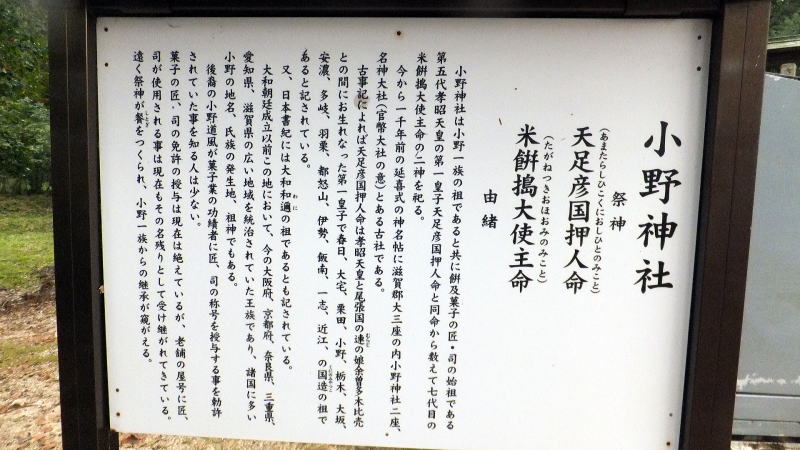 小野神社
祭神
(あまたらしひこくにおしひとのみこと)
天足彦国押人命
(たがねつきおほおみのみこと)
米餅搗大使主命
由緒
小野神社は小野一族の祖であると共に餅及菓子の匠・司の始祖である
第五代孝昭天皇の第一皇子天足彦国押人命と同命から数えて七代目の
米餅搗大使主命の二神を祀る。
今から一千年前の延喜式の神名帖に滋賀郡大三座の内小野神社二座、
名神大社(官幣大社の意)とある古社である。
古事記によれば天足彦国押人命は孝昭天皇と尾張国の連の娘余曽多本比売
との間にお生れなった第一皇子で春日、大宅、粟田、小野、栃木、大坂、
安濃、多岐、羽栗、都怒山、伊勢、飯南、一志、近江、の国造の祖で
あると記されている。
又、日本書紀には大和和邇の祖であるとも記されている。
大和朝廷成立以前この地において、今の大阪府、京都府、奈良県、三重県、
愛知県、滋賀県の広い地域を統治されていた王族であり、諸国に多い
小野の地名、氏族の発生地、祖神でもある。
後裔の小野道風が菓子業の功績者に匠、司の称号を授与する事を勅許
されていた事を知る人は少ない。
菓子の匠、司の免許の授与は現在は絶えているが、老舗の屋号に匠、
司が使用される事は現在もその名残りとして受け継がれてきている。
遠く祭神が餈をつくられ、小野一族からの継承が窺がえる。